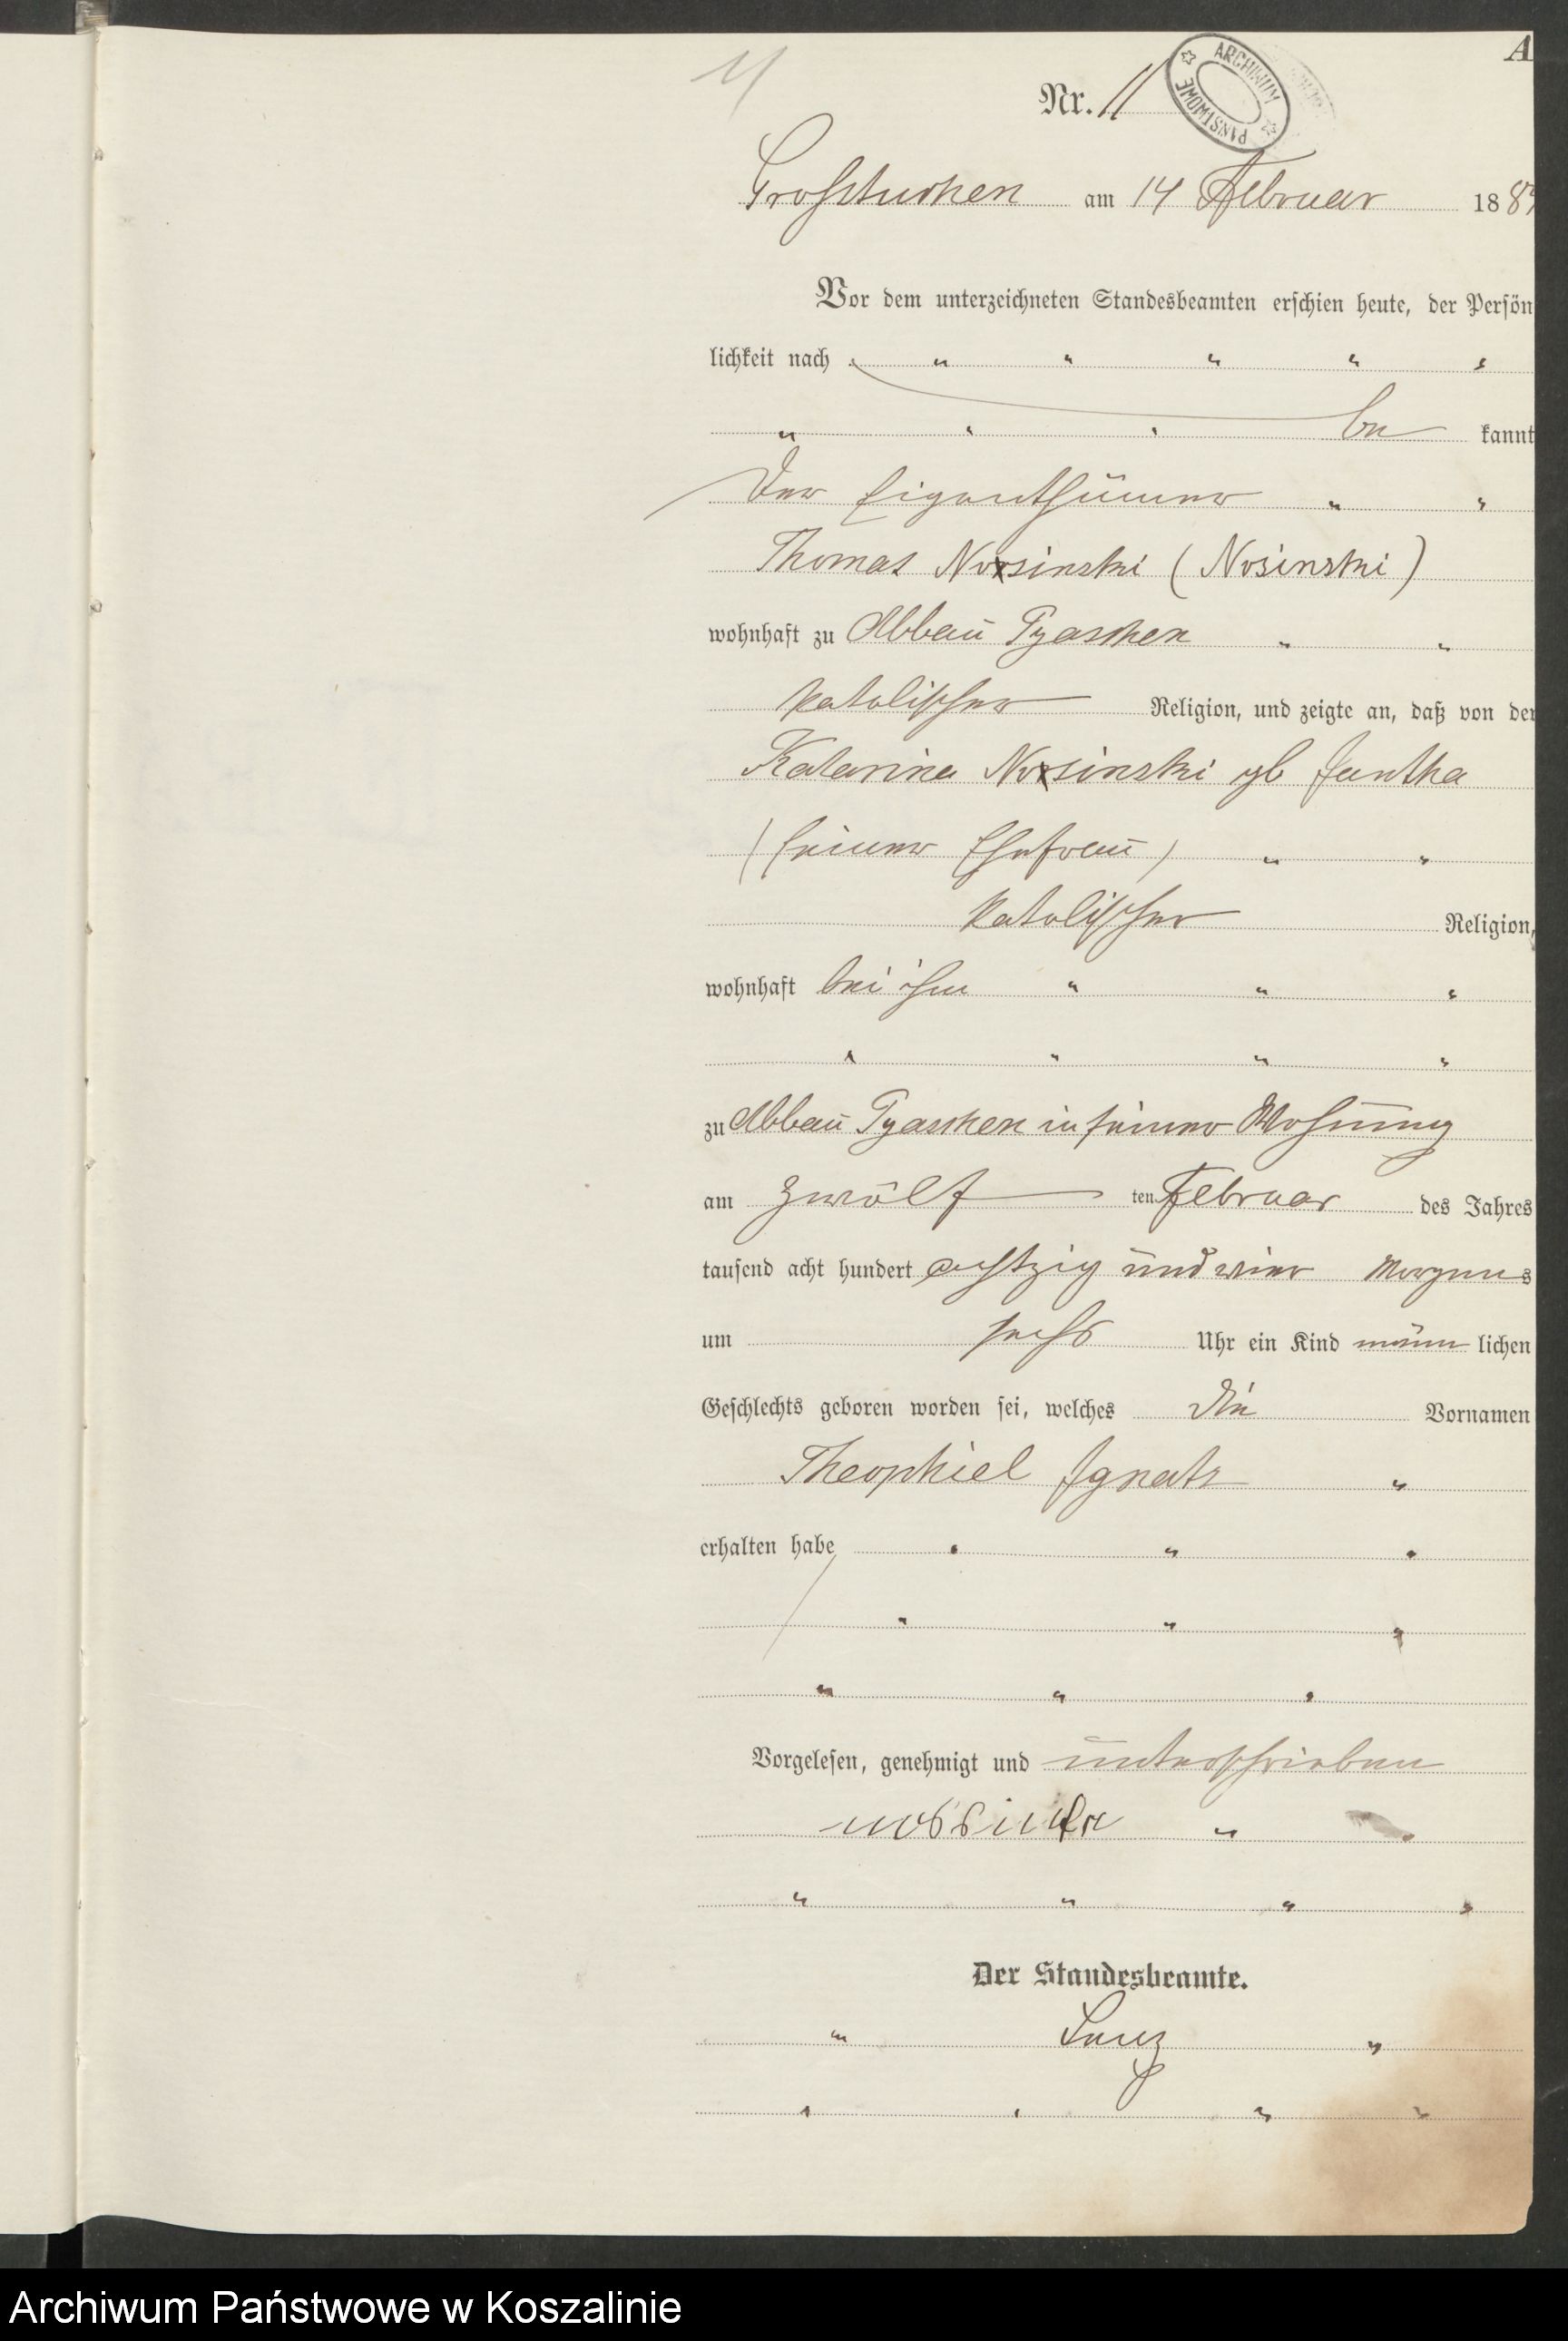 A
11
Nr. 11
ARCHIWUM PAŃSTWOWE
Grosstuchen am 14 Februar 188
Vor dem unterzeichneten Standesbeamten erschien heute, der Persön
lichkeit nach " " " " "
" " " be kannt
Der Eigenthümer " "
Thomas Norsinski (Nosinski)
wohnhaft zu Abbau Pyaschen " "
katolischer Religion, und zeigte an, daß von der
Katarina Norsinski gb Jantha
(seiner Ehefrau) " "
katolischer Religion,
wohnhaft bei ihm " " "
" " " "
zu Abbau Pyaschen in seiner Wohnung
am zwölf ten Februar des Jahres
tausend acht hundert achtzig und vier Morgens
um sechs Uhr ein Kind männ lichen
Geschlechts geboren worden sei, welches die Vornamen
Theophiel Ignatz "
erhalten habe " " "
" " "
" " "
Vorgelesen, genehmigt und unterschrieben
"
" " " "
Der Standesbeamte.
" "
" " " "
Archiwum Państwowe w Koszalinie